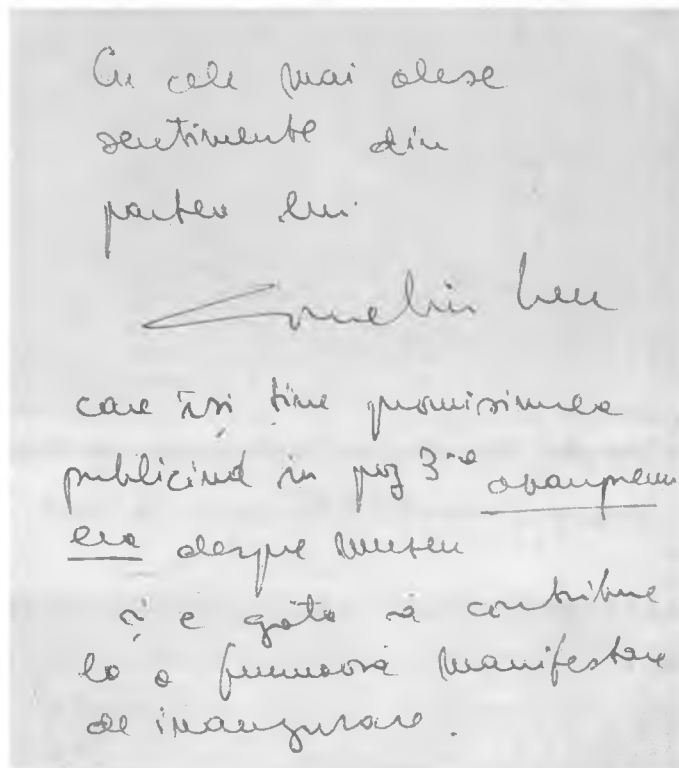 Cu cele mai alese
sentimente din
partea lui
Corneliu Leu
care își ține promisiunea
publicînd în pag 3-a avanpremi
era despre muzeu
și e gata să contribuie
la o frumoasă manifestare
de inaugurare.